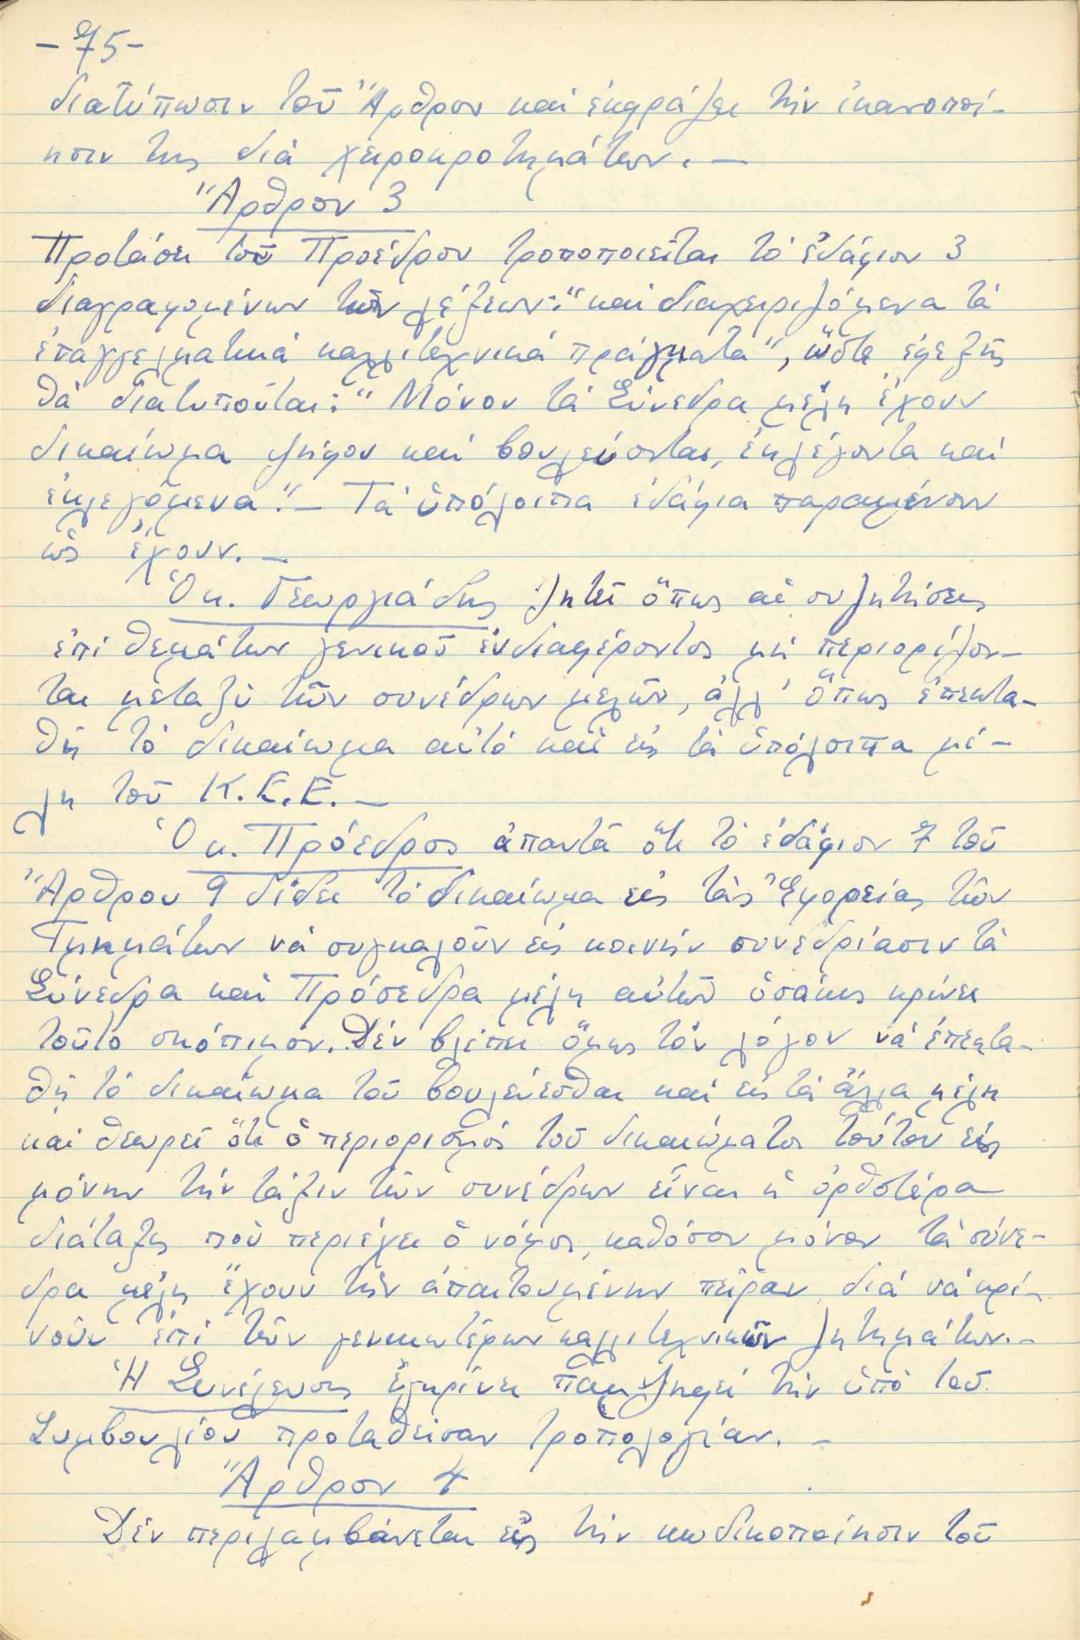 -75-
διατύπωσιν τοῦ Ἄρθρου καί ἐκφράζει τήν ἱκανοποί-
ησιν της διά χειροκροτημάτων.-
Ἄρθρον 3
Προτάσει τοῦ Προέδρου τροποποιεῖται τό ἐδάφιον 3
διαγραφομένων τῶν λέξεων: "καί διαχειριζόμενα τά
ἐπαγγελματικά καλλιτεχνικά πράγματα", ὥστε ἐφεξῆς
θά διατυποῦται: "Μόνον τά Σύνεδρα μέλη ἔχουν
δικαίωμα ψήφου καί βουλεύονται, ἐκλέγοντα καί
ἐκλεγόμενα".- Τά ὑπόλοιπα ἐδάφια παραμένουν
ὡς ἔχουν.-
Ὁ κ. Γεωργιάδης ζητεῖ ὅπως αἱ συζητήσεις
ἐπί θεμάτων γενικοῦ ἐνδιαφέροντος μή περιορίζον-
ται μεταξύ τῶν συνέδρων μελῶν, ἀλλ' ὅπως ἐπεκτα-
θῇ τό δικαίωμα αὐτό καί εἰς τά ὑπόλοιπα μέ-
λη τοῦ Κ.Ε.Ε.-
Ὁ κ. Πρόεδρος ἀπαντᾶ ὅτι τό ἐδάφιον 7 τοῦ
Ἄρθρου 9 δίδει τό δικαίωμα εἰς τάς Ἐφορείας τῶν
Τμημάτων νά συγκαλοῦν εἰς κοινήν συνεδρίασιν τά
Σύνεδρα καί Πρόσεδρα μέλη αὐτῶν ὁσάκις κρίνει
τοῦτο σκόπιμον. Δέν βλέπει ὅμως τόν λόγον νά ἐπεκτα-
θῇ τό δικαίωμα τοῦ βουλεύεσθαι καί εἰς τά ἄλλα μέλη
καί θεωρεῖ ὅτι ὁ περιορισμός τοῦ δικαιώματος τούτου εἰς
μόνην τήν τάξιν τῶν συνέδρων εἶναι ἡ ὀρθοτέρα
διάταξις πού περιέχει ὁ νόμος, καθόσον μόνον τά σύνε-
δρα μέλη ἔχουν τήν ἀπαιτουμένην πεῖραν διά νά κρί-
νουν ἐπί τῶν γενικωτέρων καλλιτεχνικῶν ζητημάτων.-
Ἡ Συνέλευσις ἐγκρίνει παμψηφεί τήν ὑπό τοῦ
Συμβουλίου προταθεῖσαν τροπολογίαν.-
Ἄρθρον 4
Δέν περιλαμβάνεται εἰς τήν κωδικοποίησιν τοῦ